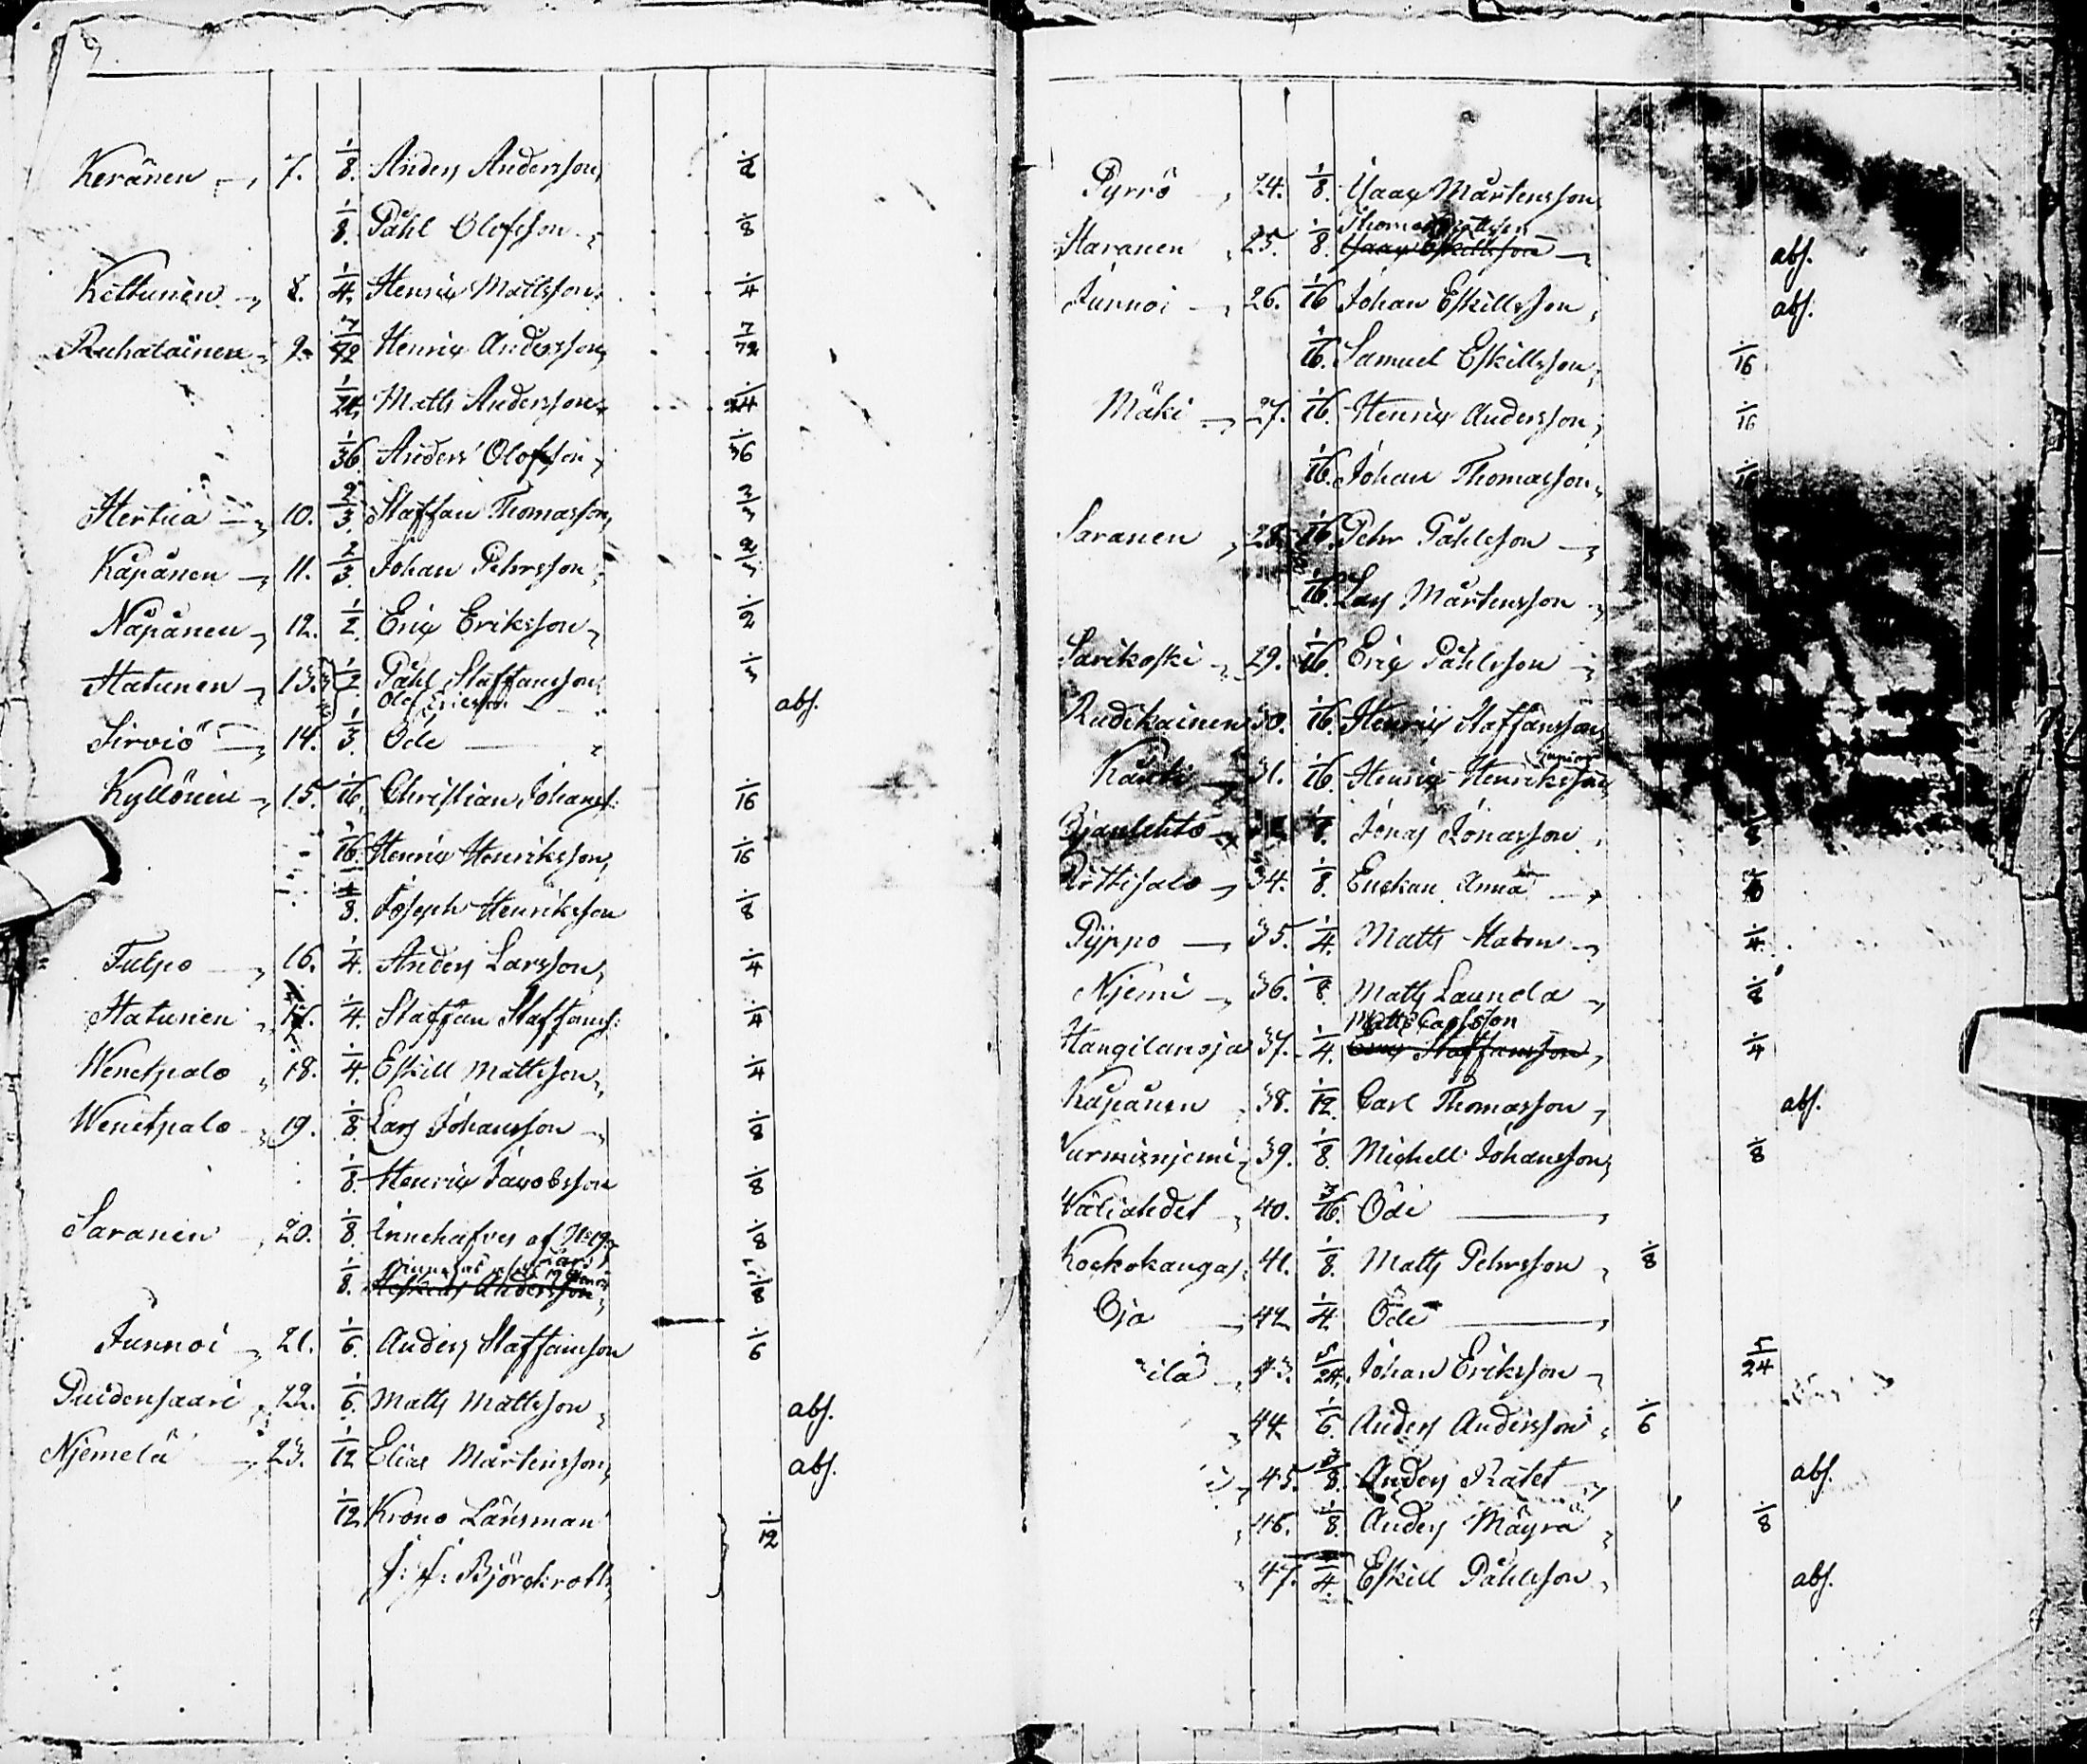 Keränen 7. 1/8. Anders Andersson 1/2
1/8. Påhl Olofsson 1/8
Kettunen 8. 1/4. Henrix Mattsson 1/4
Ruhalainen 9. 7/72 Henrix Andersson 7/72
1/24. Matts Andersson 1/24
1/36 Anders Olofsson 1/36
Hertua 10. 2/3. Staffan Thomasson 2/3
Käpänen 11. 2/3. Johan Pehrsson 2/3
Näpänen 12. 1/2. Erix Eriksson 1/2
Hatunen 13. 1/2 Påhl Staffansson 1/3
Olof Ericsson abs.
Sirviö 14. 1/3. Öde
Kyllönen 15. 1/16. Christian Johanss: 1/16
1/16. Henrix Henriksson 1/16
1/8. Joseph Henriksson 1/8
Tulpo 16. 1/4. Anders Larsson 1/4
Hatunen 17. 1/4. Staffan Staffanss: 1/4
Wenetpalo 18. 1/4. Eskill Mattsson 1/4
Wenetpalo 19. 1/8. Lars Johansson 1/8
1/8. Henrix Jacobsson 1/8
Saranen 20. 1/8. Innehafves af N:19 1/8
1/8. Andersson 1/8
Junnoi 21. 1/6. Anders Staffansson 1/6
Puidensaari 22. 1/6. Matts Mattsson abs.
Njemelä 23. 1/12 Elias Mårtensson abs.
1/12 Krono Länsman 1/12
J: J: Björckroth
Pyrrö 24. 1/8. Isaax Mårtensson
Haranen 25. 1/8. Thomas
Isaax Eskillsson abs.
Junnoi 26. 1/16 Johan Eskillsson abs.
1/16. Samuel Eskillsson 1/16
Mäki 27. 1/16. Henrix Andersson 1/16
1/16. Johan Thomasson 1/16
Saranen 28. 1/16. Pehr Påhlsson
1/16. Lars Mårtensson
Sarikoski 29. 1/16. Erix Påhlsson
Rudikainen 30. 1/16 Henrix Staffansson
31. 1/16. Henrix Henriksson junior
1/8. Jonas Jonasson 1/8
Pirttisalo 34. 1/8. Enckan Anna
Pyppo 35. 1/4. Matts Haten 1/4
Njemi 36. 1/8. Matts Launola 1/8
Matts Carlsson
Hangilanoja 37. 1/4. Staffansson 1/4
Käpänen 38. 1/12. Carl Thomasson abs.
Nurmisnjemi 39. 1/8. Michell Johansson 1/8
Wäliahdet 40. 3/16. Öde
Kockokangas 41. 1/8. Matts Pehrsson 1/8
Oja 42. 1/4. Öde
ila 43. 5/24. Johan Eriksson 5/24
44. 1/6. Anders Andersson 1/6
45. 3/8. Anders Ratet abs.
46. 1/8. Anders Mäyrä 1/8
47. 1/4. Eskill Påhlsson abs.